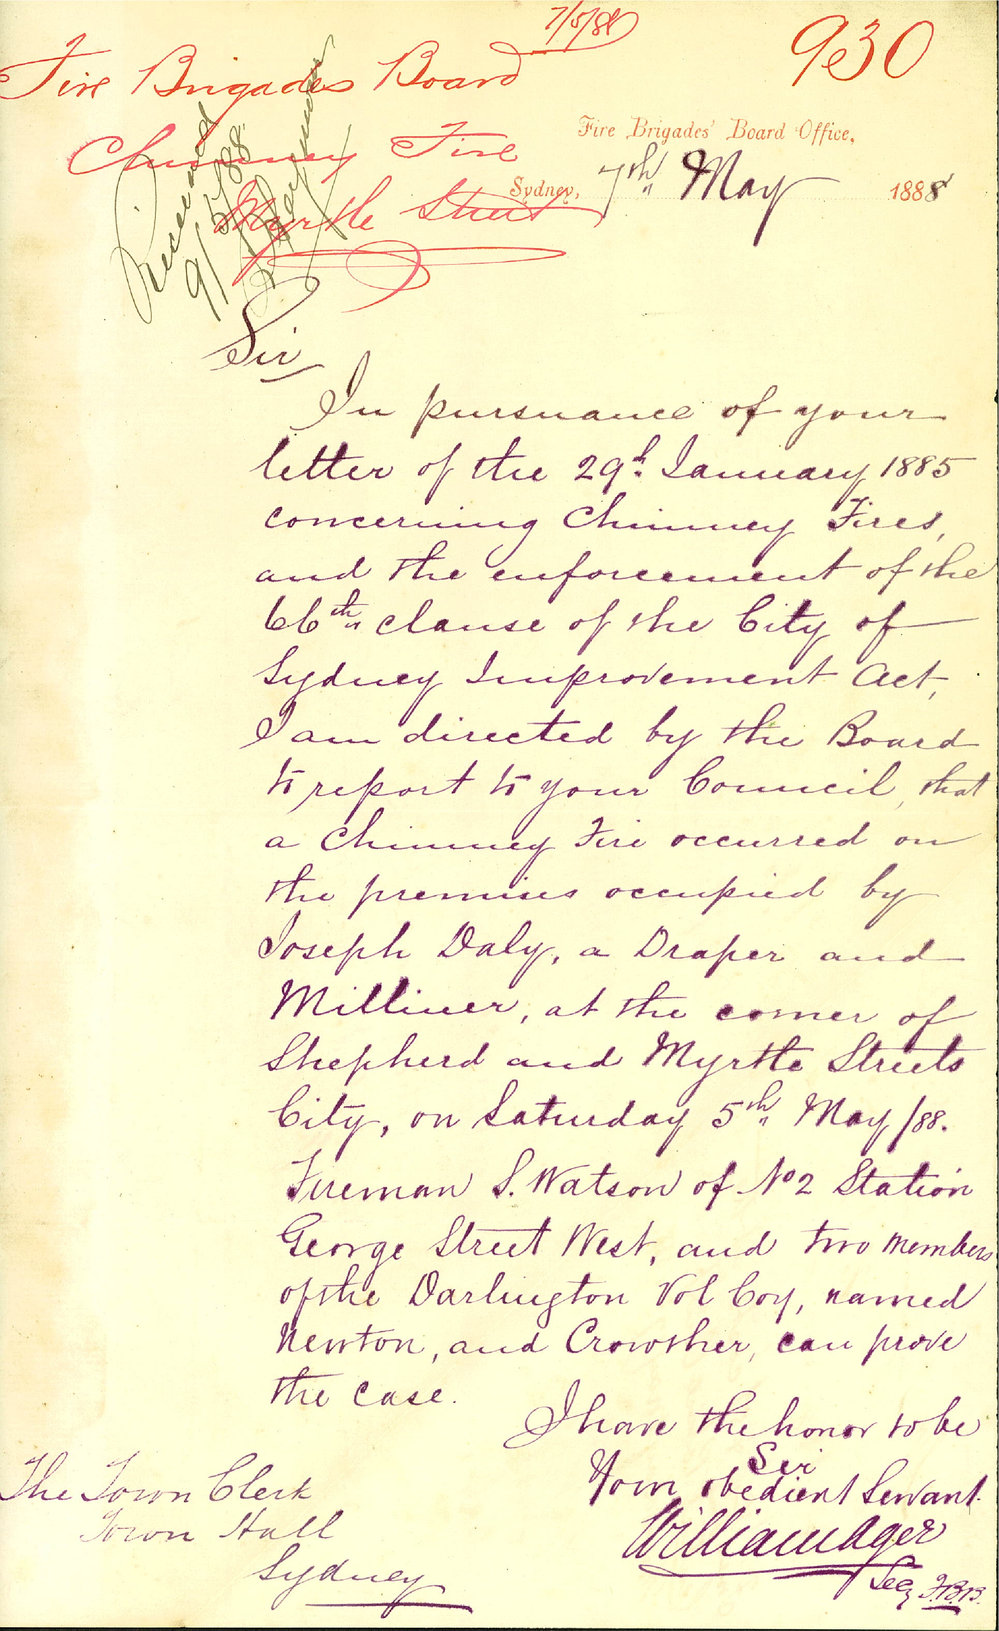 7/5/88
930
Fire Brigades Board
Chimney Fire
Myrtle Street
Received
9/5/88
Fire Brigades' Board Office,
Sydney, 7th May 1888
Sir
In pursuance of your
letter of the 29th January 1885
concerning Chimney Fires,
and the enforcement of the
66th clause of the City of
Sydney Improvement Act,
I am directed by the Board
to report to your Council, that
a Chimney Fire occurred on
the premises occupied by
Joseph Daly, a Draper and
Milliner, at the corner of
Shepherd and Myrtle Streets
City, on Saturday 5th May /88.
Fireman S. Watson of No 2 Station
George Street West, and two members
of the Darlington Vol Coy, named
Newton, and Crowther, can prove
the case.
I have the honor to be
Sir
Your obedient Servant
William Ager
Secy F.B.B.
The Town Clerk
Town Hall
Sydney